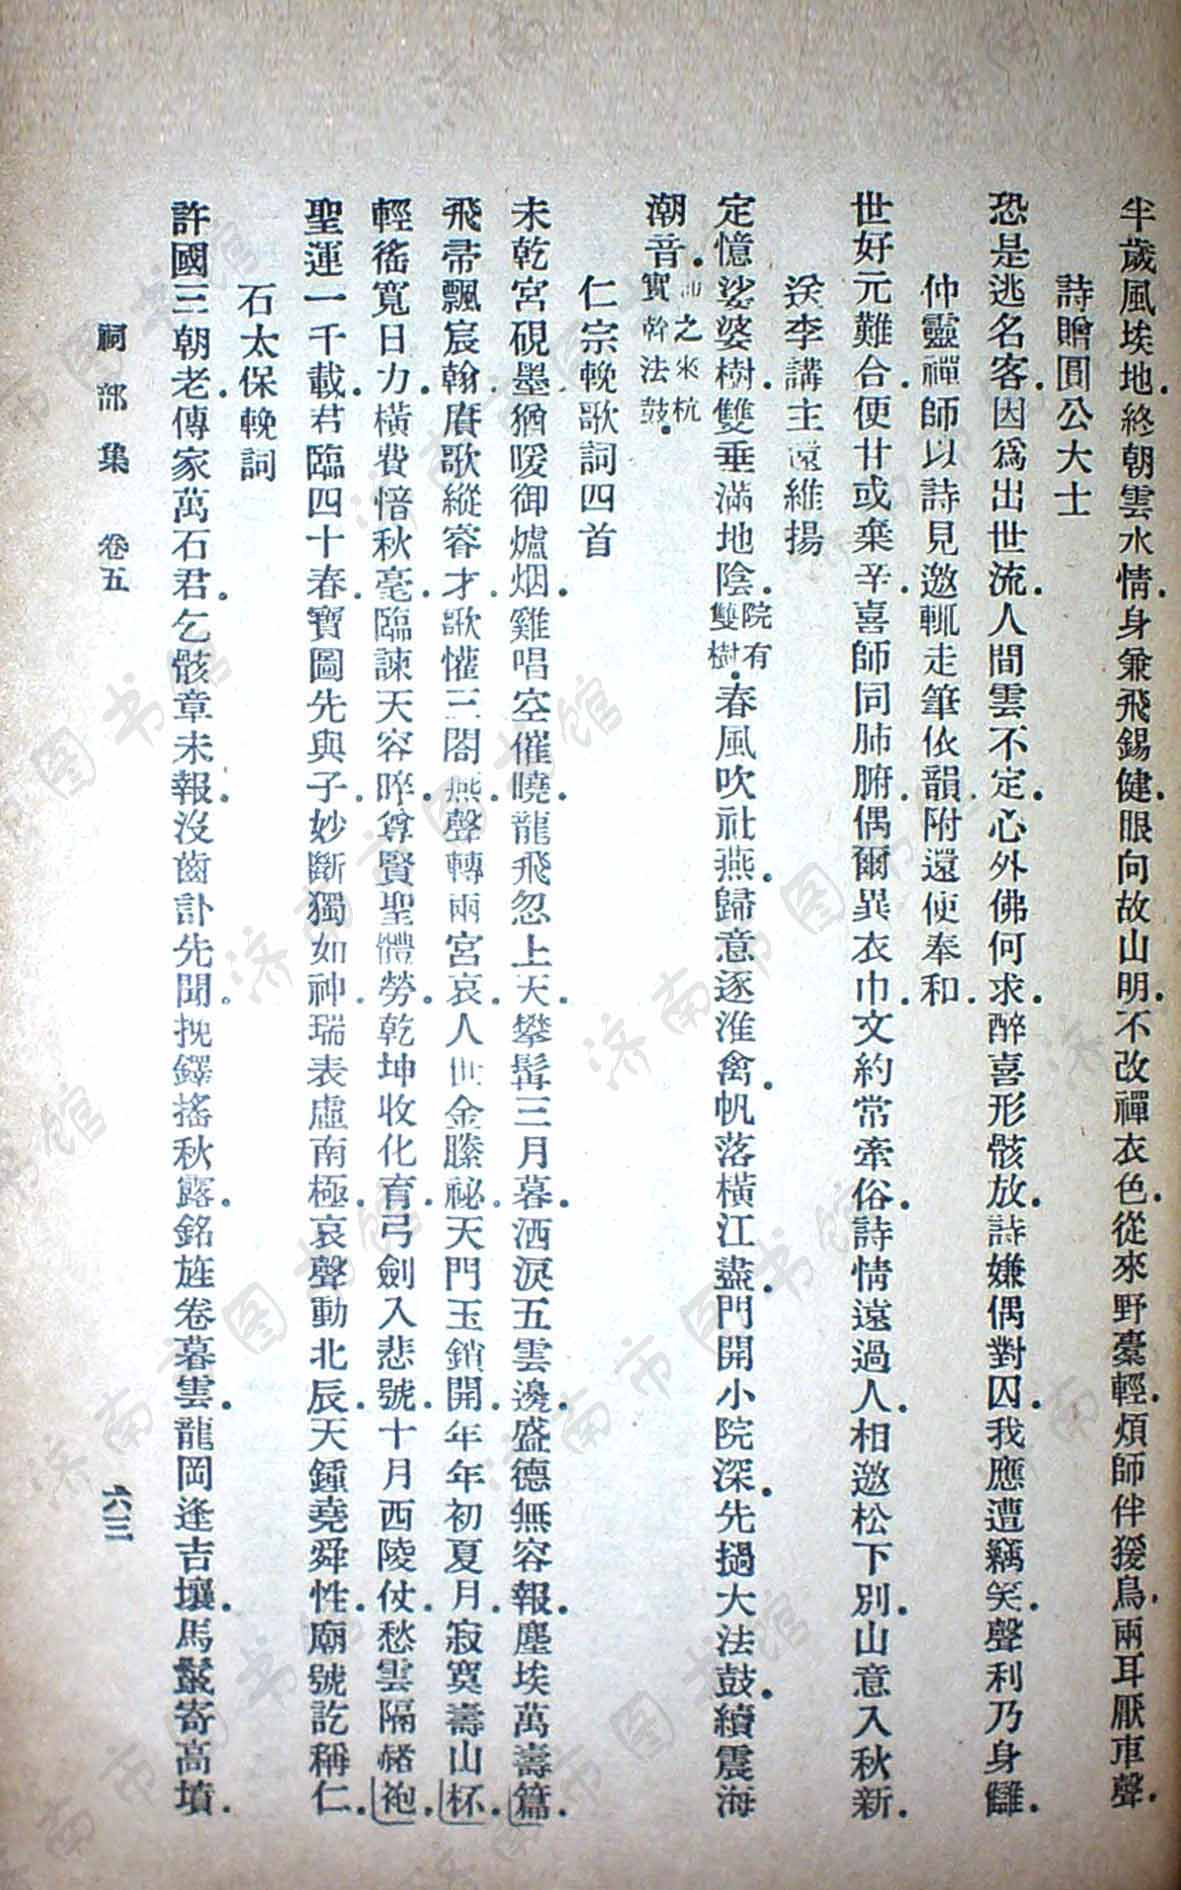 半歲風埃地終朝雲水情身兼飛錫健眼向故山明不改禪衣色從來野橐輕煩師伴猨鳥兩耳厭車聲
詩贈圓公大士
恐是逃名客因爲出世流人間雲不定心外佛何求醉喜形骸放詩嫌偶對囚我應遭竊笑聲利乃身讎
仲靈禪師以詩見邀輒走筆依韻附還使奉和
世好元難合便甘或棄辛喜師同肺腑偶爾異衣巾文約常牽俗詩情遠過人相邀松下別山意入秋新
送李講主遠維揚
定憶娑婆樹雙垂滿地陰院有雙樹春風吹社燕歸意逐淮禽帆落橫江盡門開小院深先撾大法鼓續震海
潮音師之來杭實幹法鼓
仁宗輓歌詞四首
未乾宮硯墨猶暖御爐烟雞唱空催曉龍飛忽上天攀髯三月暮洒淚五雲邊盛德無容報塵埃萬壽篇
飛帚飄宸翰賡歌縱睿才歌懽三閤燕聲轉兩宮哀人世金縢祕天門玉鎖開年年初夏月寂寞壽山杯
輕徭寬日力橫費愔秋毫臨諫天容晬尊賢聖體勞乾坤收化育弓劍入悲號十月西陵仗愁雲隔赭袍
聖運一千載君臨四十春寶圖先與子妙斷獨如神瑞表虛南極哀聲動北辰天鍾堯舜性廟號訖稱仁
石太保輓詞
許國三朝老傳家萬石君乞骸章未報沒齒訃先聞挽鐸搖秋露銘旌卷暮雲龍岡逢吉壤馬鬣寄高墳
祠部集 卷五 六三
济南市图书馆